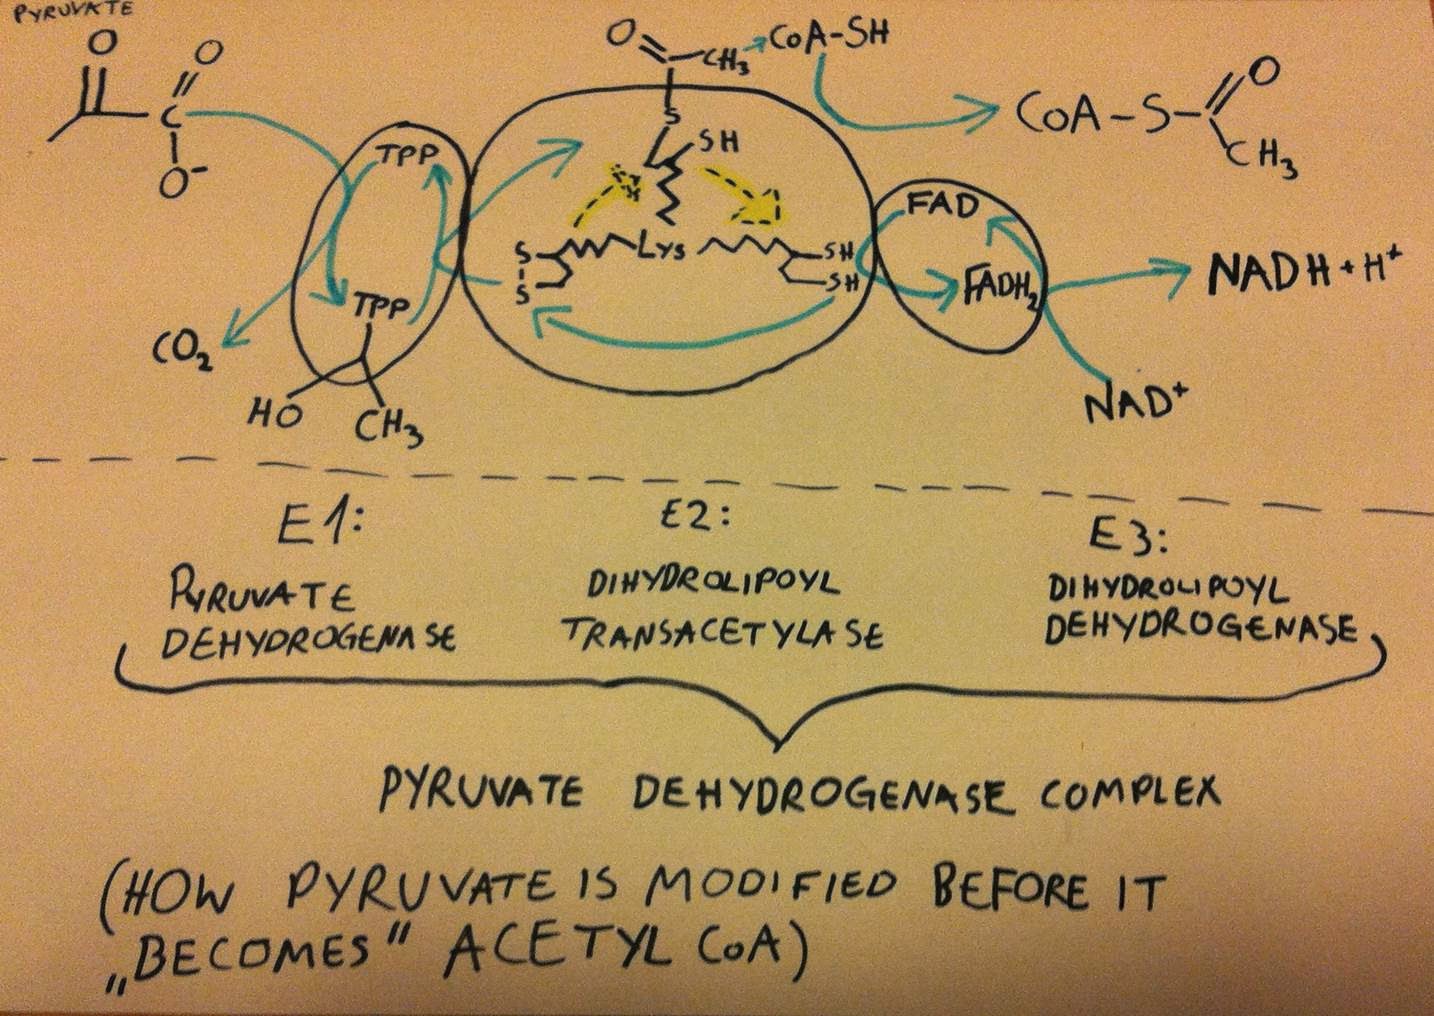 PYRUVATE
O
O
C
O-
O
CH3
CoA-SH
CoA-S-
O
CH3
TPP
S
SH
FAD
S
S
Lys
SH
SH
FADH2
NADH + H+
TPP
CO2
HO
CH3
NAD+
E1:
E2:
E3:
PYRUVATE
DEHYDROGENASE
DIHYDROLIPOYL
TRANSACETYLASE
DIHYDROLIPOYL
DEHYDROGENASE
PYRUVATE DEHYDROGENASE COMPLEX
(HOW PYRUVATE IS MODIFIED BEFORE IT
„BECOMES” ACETYL CoA)